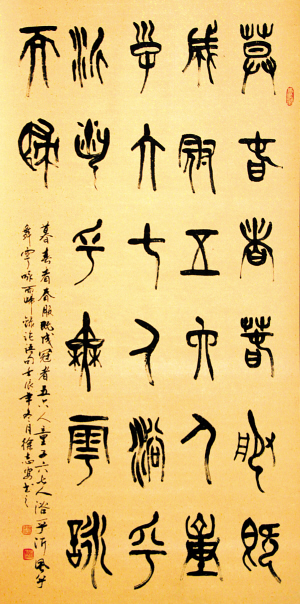 莫春者春服既
成冠五六人童
子六七人浴乎
沂風乎舞雩詠
而歸
暮春者春服既成冠者五六人童子六七人浴乎沂風乎
舞雩咏而歸錄論語句壬辰年冬月徐志書